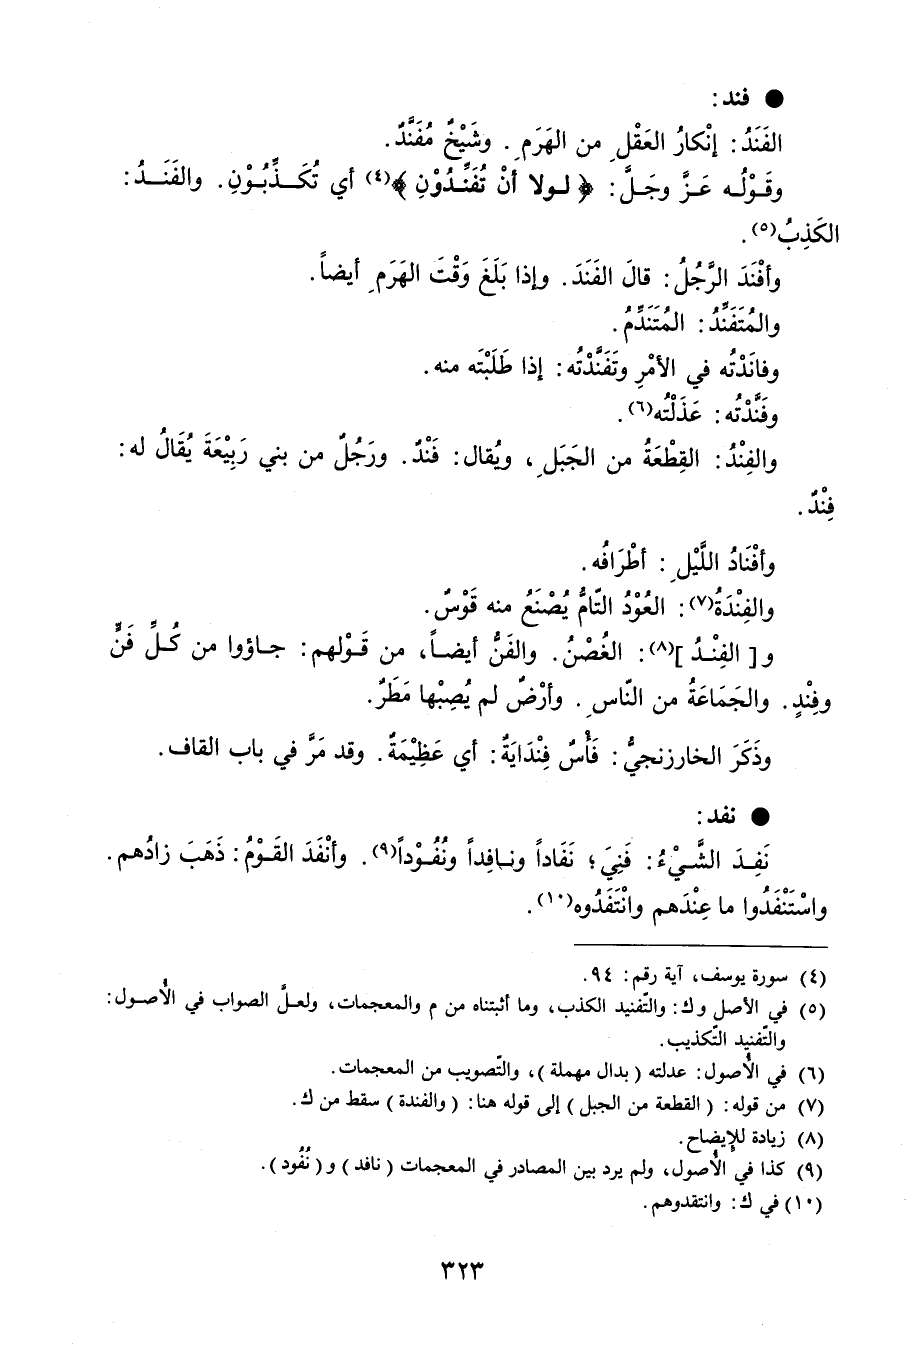 ● فند :
الفَنَدُ : إنْكارُ العَقْلِ من الهَرَمِ . وشَيْخٌ مُفَنَّدٌ .
وقَوْلُه عَزَّ وجَلَّ : ﴿ لولا أنْ تُفَنِّدُوْنِ ﴾(٤) أي تُكَذِّبُوْنِ . والفَنَدُ :
الكَذِبُ(٥) .
وأفْنَدَ الرَّجُلُ : قالَ الفَنَدَ . وإذا بَلَغَ وَقْتَ الهَرَمِ أيضاً .
والمُتَفَنِّدُ : المُتَنَدِّمُ .
وفانَدْتُه في الأمْرِ وتَفَنَّدْتُه : إذا طَلَبْتَه منه .
وفَنَّدْتُه : عَذَلْتُه(٦) .
والفِنْدُ : القِطْعَةُ من الجَبَلِ ، ويُقال : فَنْدٌ . ورَجُلٌ من بني رَبِيْعَةَ يُقَالُ له :
فِنْدٌ .
وأفْنَادُ اللَّيْلِ : أطْرَافُه .
والفِنْدَةُ(٧) : العُوْدُ التّامُّ يُصْنَعُ منه قَوْسٌ .
و [ الفِنْدُ ](٨) : الغُصْنُ . والفَنُّ أيضاً ، من قَوْلهم : جاؤوا من كُلِّ فَنٍّ
وفِنْدٍ . والجَمَاعَةُ من النّاسِ . وأرْضٌ لم يُصِبْها مَطَرٌ .
وذَكَرَ الخارزنجيُّ : فَأْسٌ فِنْدَايَةٌ : أي عَظِيْمَةٌ . وقد مَرَّ في باب القاف .
● نفد :
نَفِدَ الشَّيْءُ : فَنِيَ ؛ نَفَاداً ونافِداً ونُفُوْداً(٩) . وأنْفَدَ القَوْمُ : ذَهَبَ زادُهم .
واسْتَنْفَدُوا ما عِنْدَهم وانْتَفَدُوه(١٠) .
(٤) سورة يوسف ، آية رقم : ٩٤ .
(٥) في الأصل وك : والتّفنيد الكذب ، وما أثبتناه من م والمعجمات ، ولعلَّ الصواب في الأُصول :
والتّفنيد التّكذيب .
(٦) في الأُصول : عدلته ( بدال مهملة ) ، والتّصويب من المعجمات .
(٧) من قوله : ( القطعة من الجبل ) إلى قوله هنا : ( والفندة ) سقط من ك .
(٨) زيادة للإِيضاح .
(٩) كذا في الأُصول ، ولم يرد بين المصادر في المعجمات ( نافد ) و ( نُفُود ) .
(١٠) في ك : وانتقدوهم .
٣٢٣